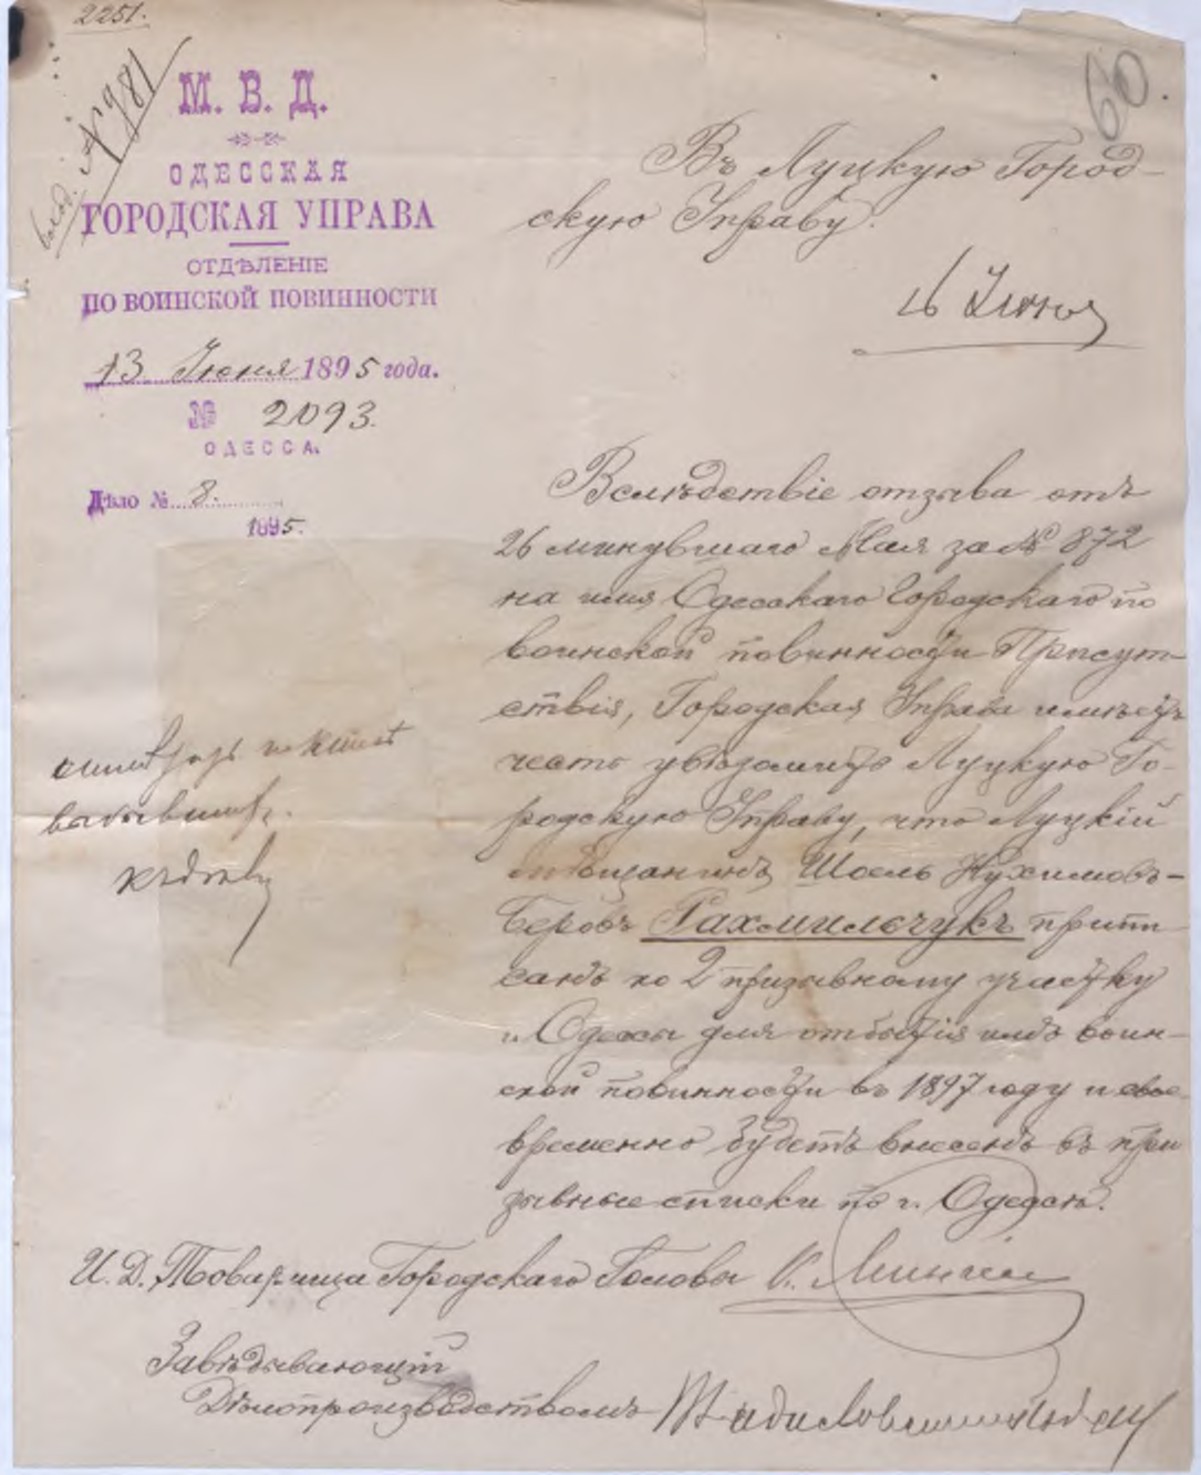 2251.
60.
вход. № 981
М. В. Д.
ОДЕССКАЯ
ГОРОДСКАЯ УПРАВА
ОТДѢЛЕНІЕ
ПО ВОИНСКОЙ ПОВИННОСТИ
13 Іюня 1895 года.
№ 2093.
ОДЕССА.
Дѣло № 8.
1895.
Въ Луцкую Город-
скую Управу.
16 Іюня
Вслѣдствіе отзыва отъ
26 минувшаго Мая за № 872
на имя Одесскаго Городскаго по
воинской повинности Присут-
ствія, Городская Управа имѣетъ
честь увѣдомить Луцкую Го-
родскую Управу, что Луцкій
мѣщанинъ Шоель Нухимовъ-
Беровъ Рахмильчукъ припи
санъ ко 2 призывному участку
г. Одессы для отбытія имъ воин-
ской повинности въ 1897 году и свое
временно будетъ внесенъ въ при
зывные списки по г. Одессѣ.
къ дѣлу
И. Д. Товарища Городскаго Головы
Завѣдывающій
Дѣлопроизводствомъ